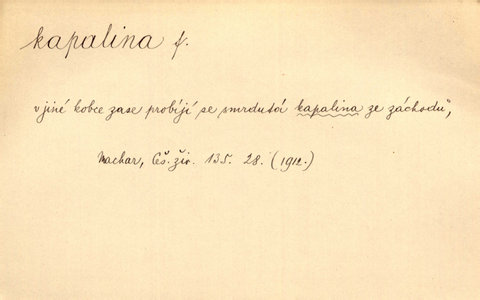 kapalina f.
v jiné kobce zase probíjí se smrdutá kapalina ze záchodů",
Machar, Čes. živ. 135. 28. (1912.)